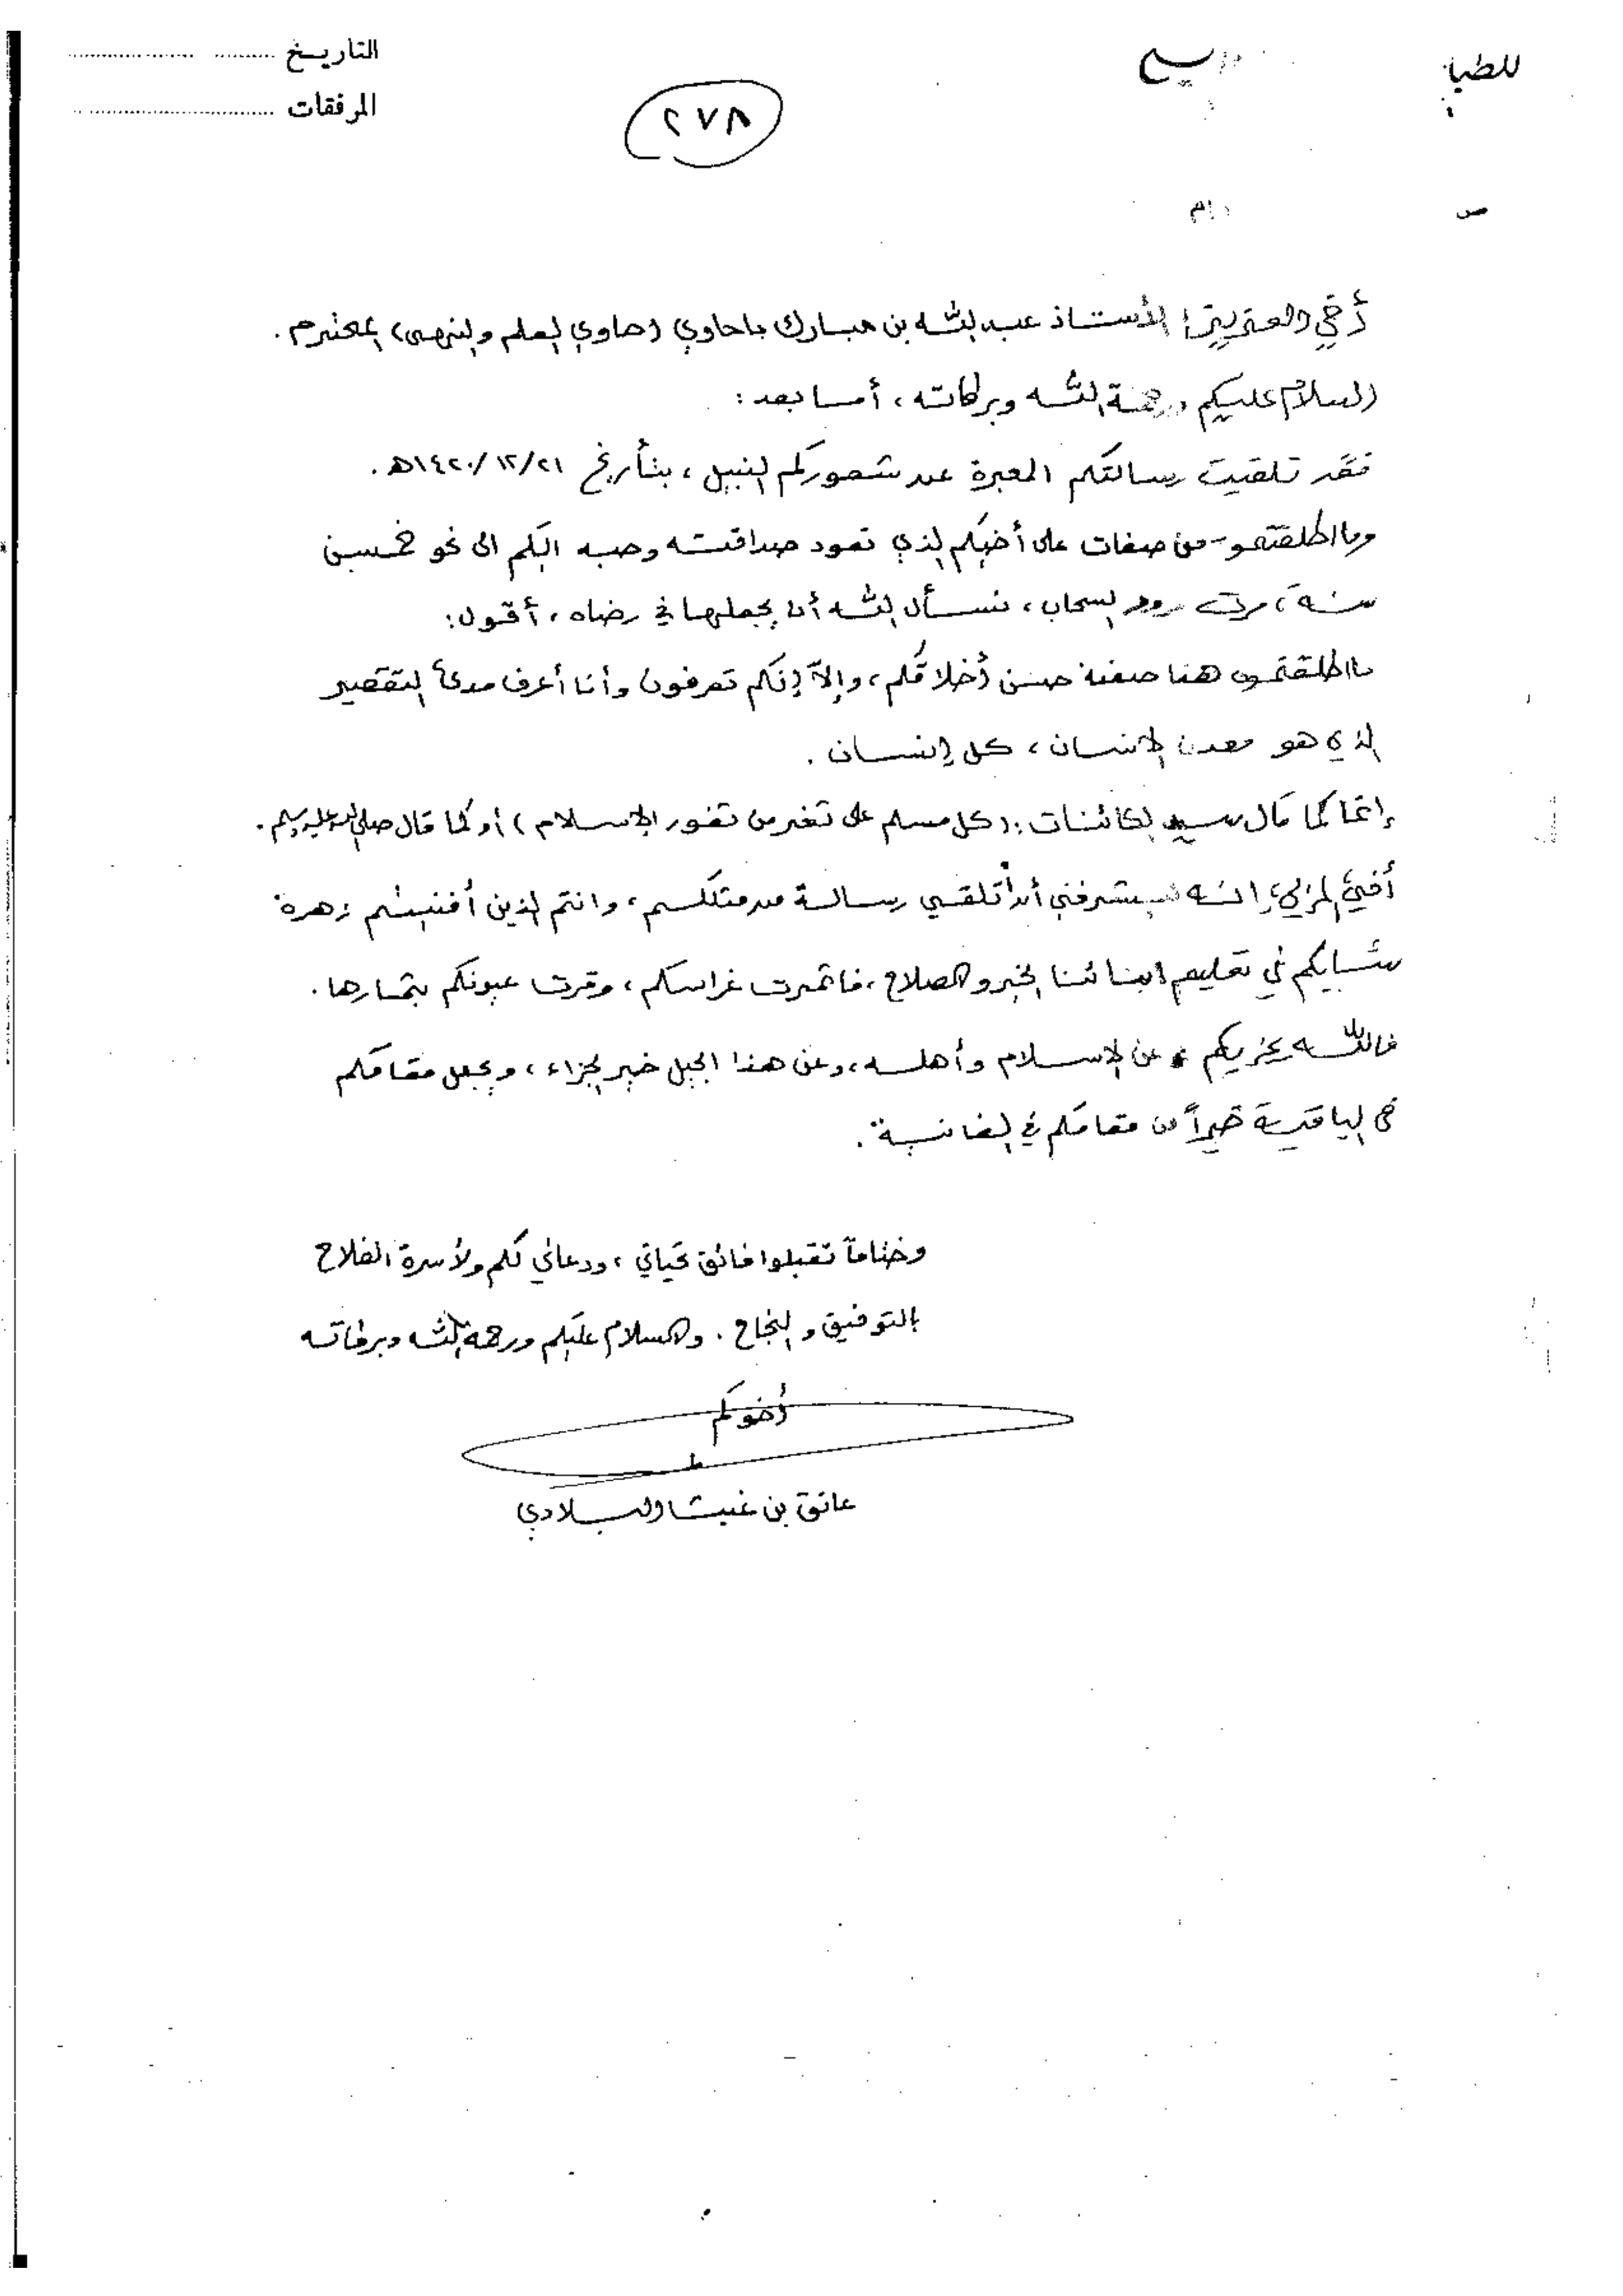 التاريخ
المرفقات
٢٧٨
أخي العزيز: الأستاذ عبد الله بن مبارك باحاوي (حاوي العلم والنهى) المحترم.
السلام عليكم ورحمة الله وبركاته، أما بعد:
فقد تلقيت رسالتكم المعبرة عن شعوركم النبيل، بتأريخ ١٤٢٠/١٢/٢١هـ.
وما اطلقتموه من صفات على أخيكم الذي تعود صداقته وحبه اليكم الى نحو خمسين
سنة، مرت مرور السحاب، نسأل الله أن يجعلها في رضاه، أقول:
ما اطلقتموه هنا صفته حسن أخلاقكم، وإلاّ إنكم تعرفون وأنا أعرف مدى التقصير
الذي هو معدن الإنسان، كل إنسان.
إنما كما قال سيد الكائنات: (كل مسلم على ثغر من ثغور الإسلام) أو كما قال صلى الله عليه وسلم.
أخي إنه ليشرفني أن أتلقى رسالة من مثلكم، وانتم الذين أفنيتم زهرة
شبابكم في تعليم ابنائنا الخير والصلاح، فاثمرت غراسكم، وقرت عيونكم بثمارها.
فالله يجزيكم عن الإسلام وأهله، وعن هذا الجيل خير الجزاء، ويجعل مقامكم
في الباقية خيراً من مقامكم في الفانية.
وختاماً تقبلوا فائق تحياتي، ودعائي لكم ولأسرة الفلاح
بالتوفيق والنجاح. والسلام عليكم ورحمة الله وبركاته
أخوكم
عاتق بن غيث البلادي